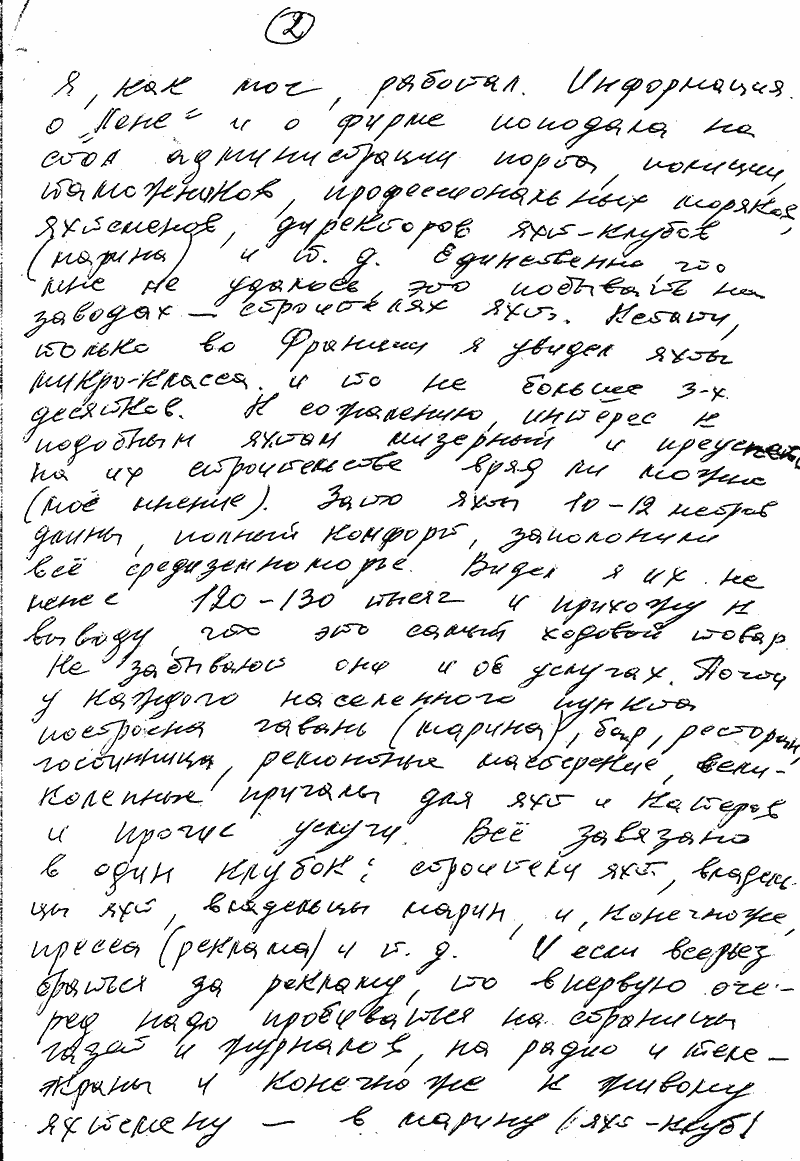 2
Я, как мог, работал. Информация
о „Лене" и о фирме попадала на
стол администрации порта, полиции,
таможенников, профессиональных моряков,
яхтсменов, директоров яхт-клубов
(марина) и т. д. Единственно, что
мне не удалось, это побывать на
заводах — строителях яхт. Кстати,
только во Франции я увидел яхты
микро-класса и то не больше 3-х
десятков. К сожалению, интерес к
подобным яхтам мизерный и преуспеть
на их строительстве вряд ли можно
(моё мнение). Зато яхты 10–12 метров
длины, полный комфорт, заполонили
всё средиземноморье. Видел я их не
менее 120–130 тысяч и прихожу к
выводу, что это самый ходовой товар.
Не забывают они и об услугах. Почти
у каждого населенного пункта
построена гавань (марина), бар, ресторан,
гостинница, ремонтные мастерские, вели-
колепные причалы для яхт и катеров
и прочие услуги. Всё завязано
в один клубок: строители яхт, владель-
цы яхт, владельцы марин, и, конечноже,
пресса (реклама) и т. д. И если всерьёз
браться за рекламу, то впервую оче-
ред надо пробиваться на страницы
газет и журналов, на радио и теле-
экраны и конечно же к живому
яхтсмену — в марину (яхт-клуб)